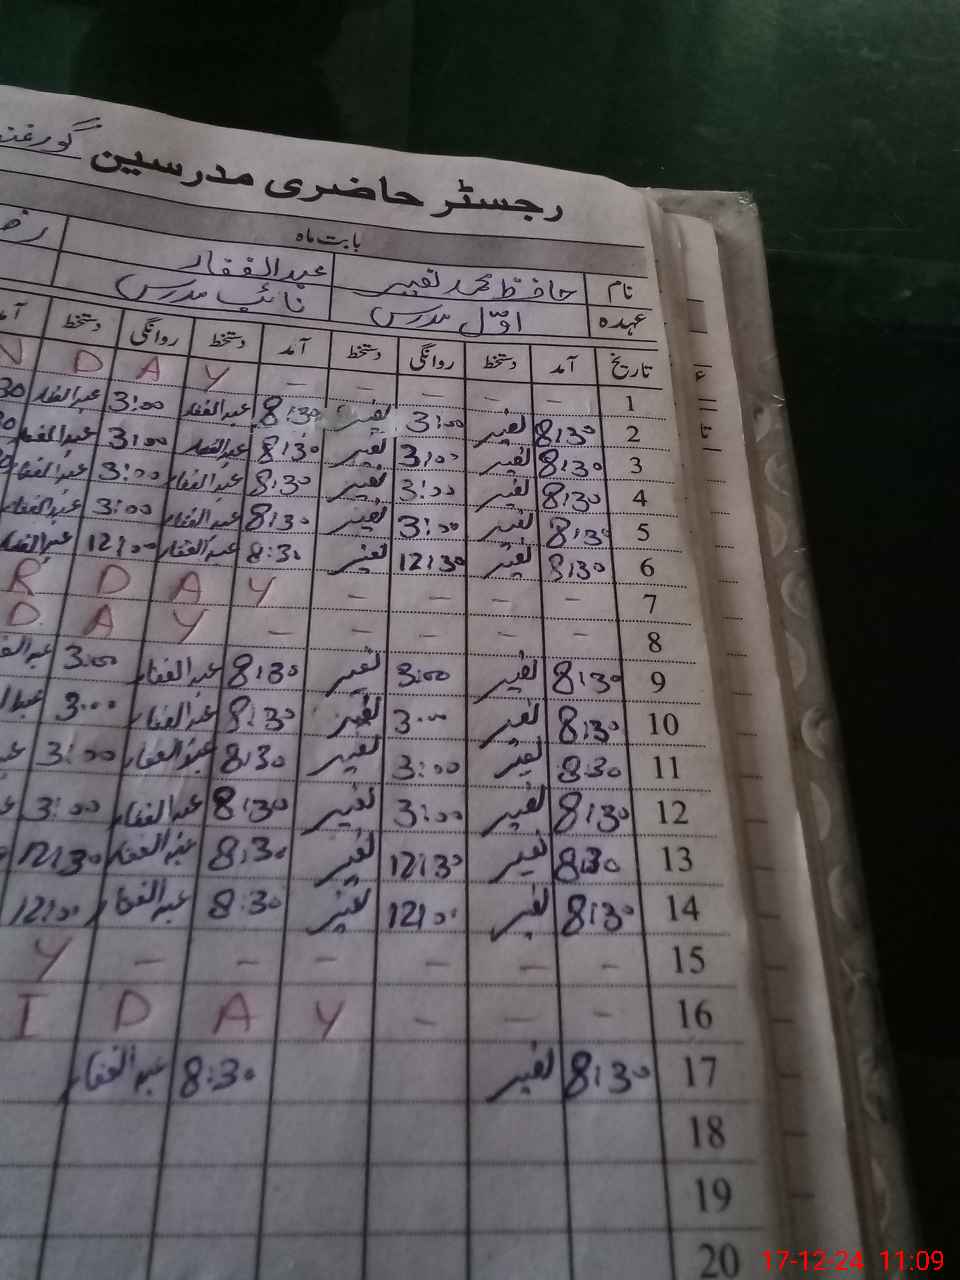 رجسٹر حاضری مدرسین
بابت ماہ
نام حافظ محمد نصیر عبدالغفار
عہدہ اوّل مدرس نائب مدرس
تاریخ آمد دستخط روانگی دستخط آمد دستخط روانگی دستخط
1 - - - - - Y A D N
2 8:30 نصیر 3:00 نصیر 8:30 عبدالغفار 3:00 عبدالغفار
3 8:30 نصیر 3:00 نصیر 8:30 عبدالغفار 3:00 عبدالغفار
4 8:30 نصیر 3:00 نصیر 8:30 عبدالغفار 3:00 عبدالغفار
5 8:30 نصیر 3:00 نصیر 8:30 عبدالغفار 3:00 عبدالغفار
6 8:30 نصیر 12:30 نصیر 8:30 عبدالغفار 12:00 عبدالغفار
7 - - - - Y A D R
8 - - - - - Y A D
9 8:30 نصیر 3:00 نصیر 8:30 عبدالغفار 3:00
10 8:30 نصیر 3:00 نصیر 8:30 عبدالغفار 3:00
11 8:30 نصیر 3:00 نصیر 8:30 عبدالغفار 3:00
12 8:30 نصیر 3:00 نصیر 8:30 عبدالغفار 3:00
13 8:30 نصیر 12:30 نصیر 8:30 عبدالغفار 12:30
14 8:30 نصیر 12:00 نصیر 8:30 عبدالغفار 12:00
15 - - - - - - Y
16 - - - Y A D I
17 8:30 نصیر 8:30 عبدالغفار
18
19
20
17-12-24 11:09